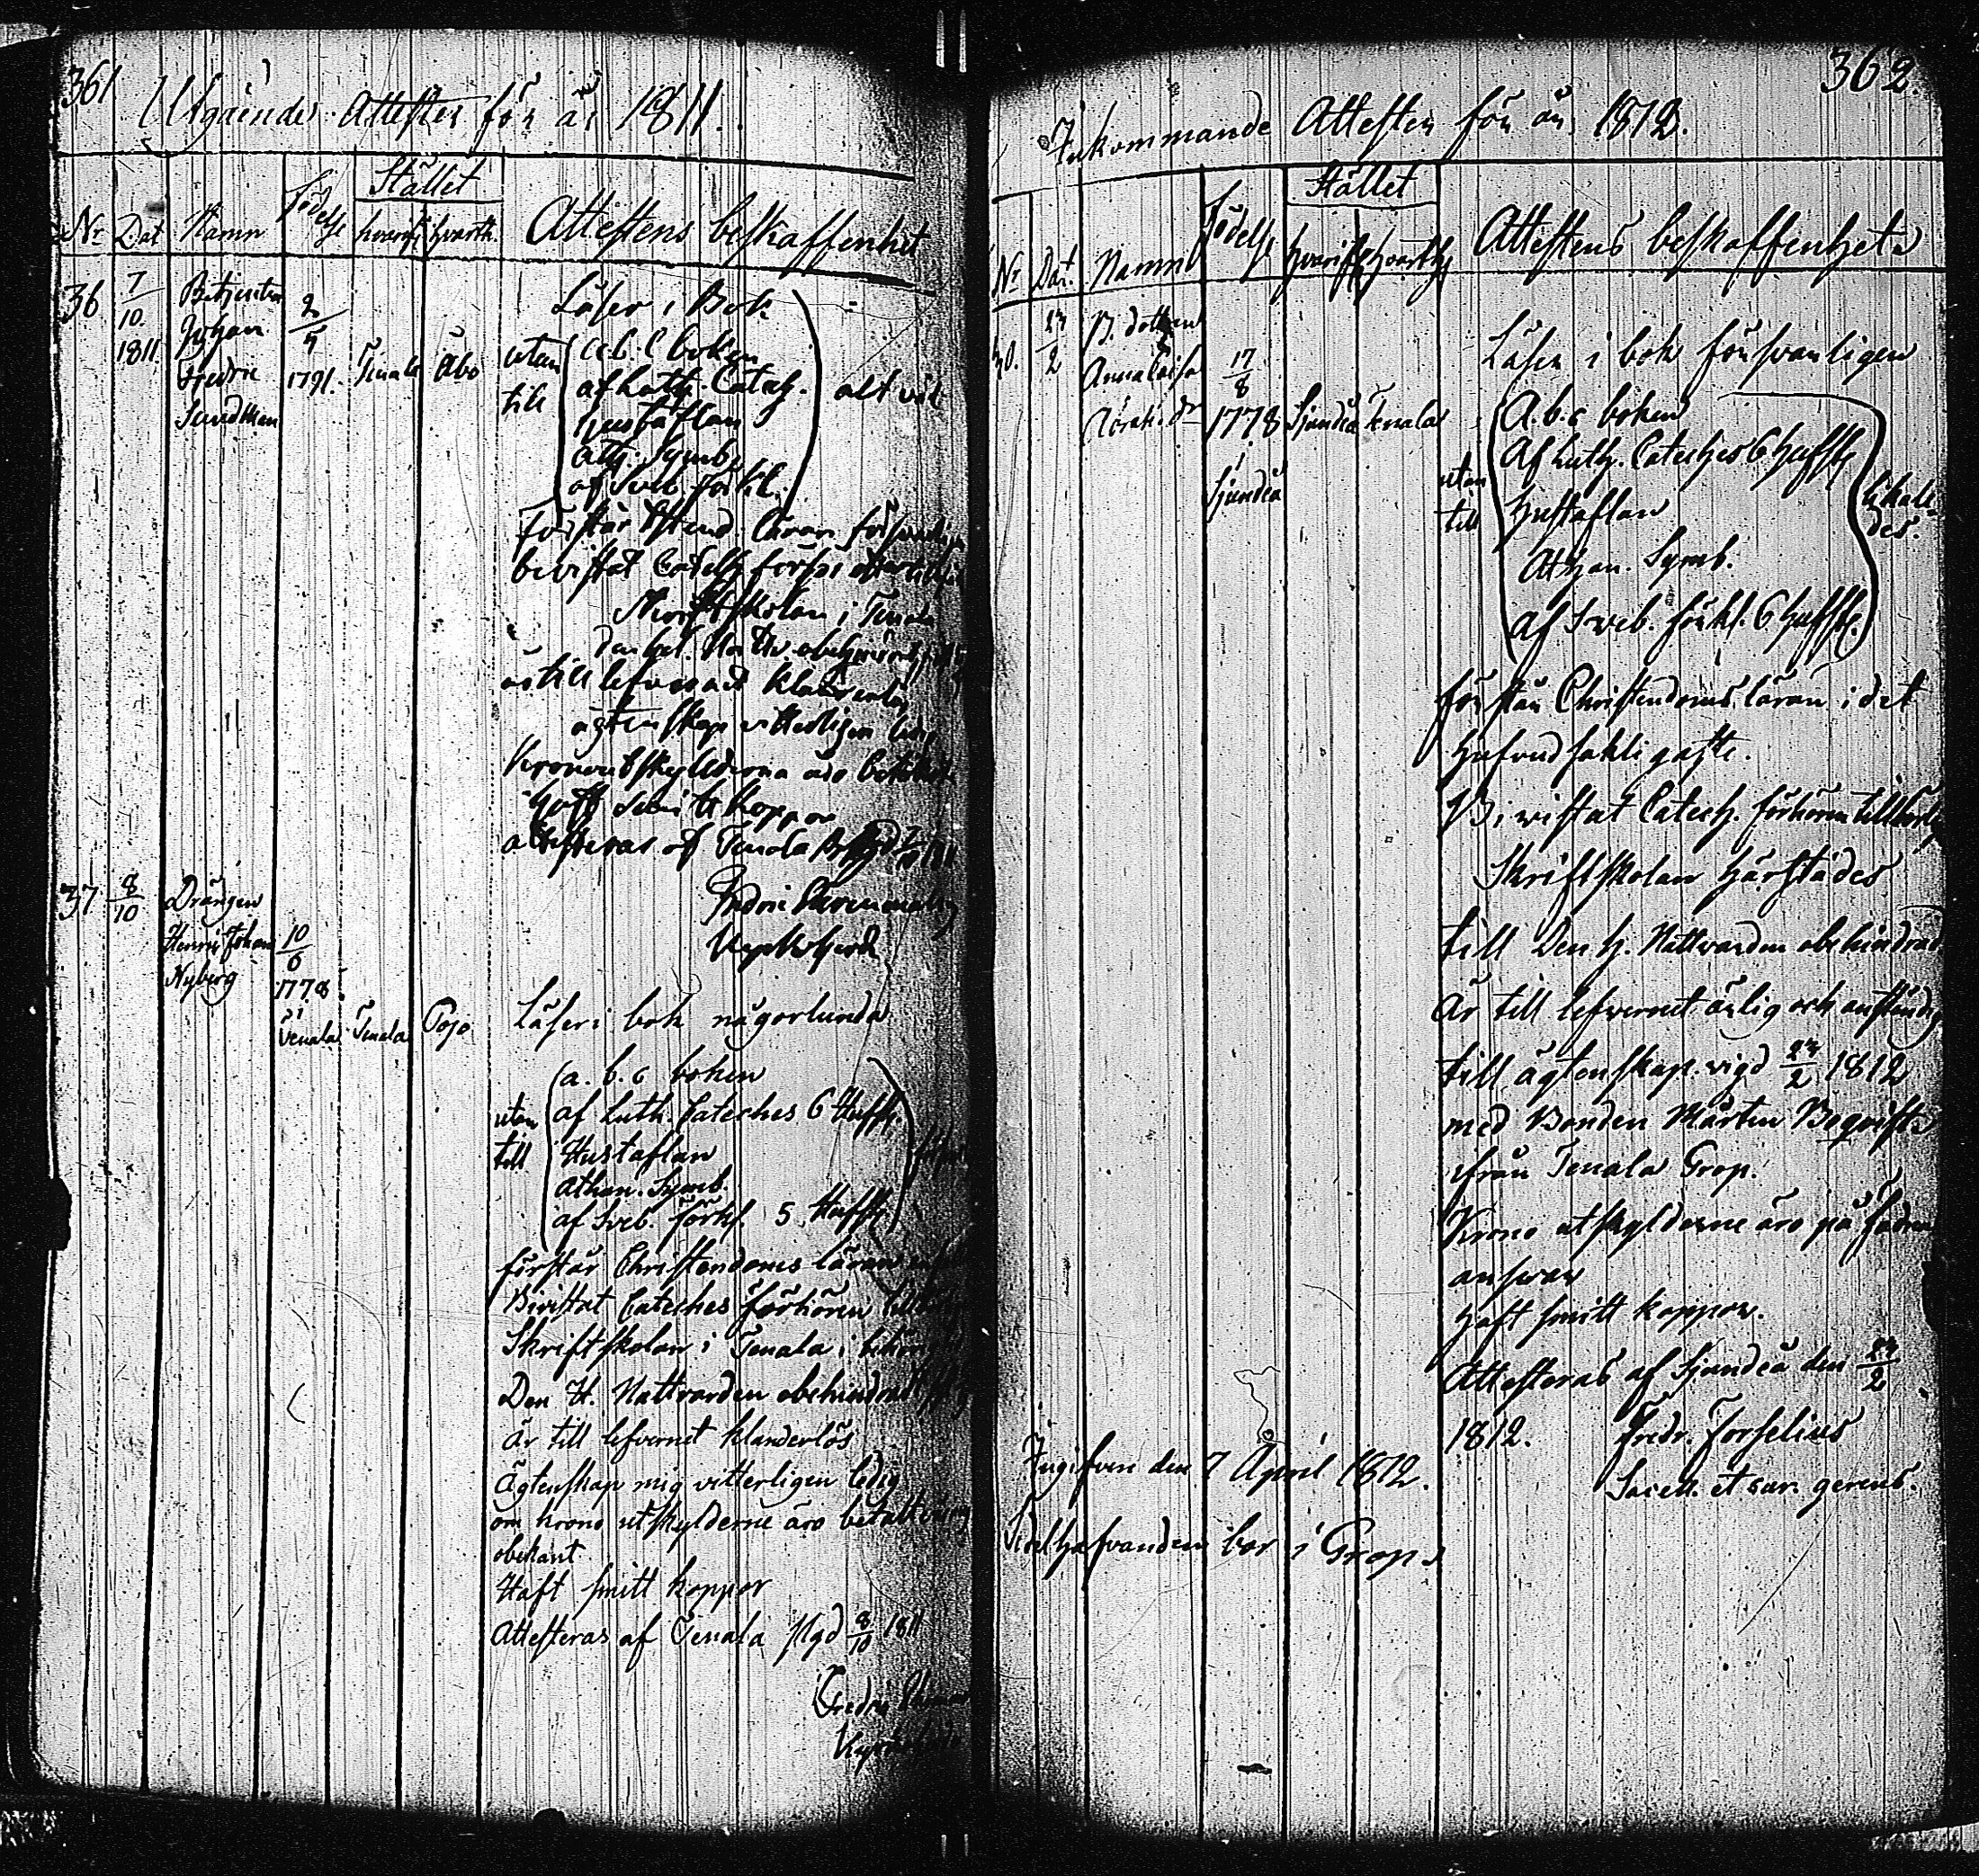 361
Utgående Attester för år 1811.
Stället
Nr Dat Namn Födelse hvarifr hvarth. Attestens beskaffenhet
36 7/10 1811 Betjenten Johan Fredric Sundman 2/4 1791. Tenala Åbo
Läser i Bok
utan till
a.b.c boken
af Luth. Catech.
hustaflan
ath. Symb.
af Sveb. förkl.
alt väl
förstår Christend. läran försvarligen
bevistat Catech förhör
Skriftskolan i Tenala
den hel. obehindrad
är till lefvernet klanderlös
ägtenskap vitterligen ledig
Kronoutskylderna äro betalte
haft smitt koppor
attesteras af Tenala 7/10 1811
Fredric
Kyrkoherde
37 8/10 Drängen Henric Johan Nyberg 10/6 1778 i Tenala Tenala Pojo
Läser i bok någorlunda
utan till
a.b.c boken
af Luth. Cateches 6 Hufst.
Hustaflan
Athan. Symb.
af Sveb. förkl. 5 Hufst.
förstår Christendoms läran
Bivistat Cateches förhören
Skriftskolan i Tenala i
Den H. Nattvarden obehindrad
är till lefvernet klanderlös
ägtenskap mig vitterligen ledig
om krono utskylderne äro betalt
obekant
Haft smitt koppor
Attesteras af Tenala Pgd 8/10 1811
Fredric
362.
Inkommande Attester för år 1812.
Stället
Nr Dat. Namn Födelse hvarifr hvarth Attestens beskaffenhet
30. 24/2 B. dottren Anna Caisa 17/8 1778 i Sjundeå Sjundeå Tenala
Läser i bok försvarligen
utan till
A.b.c boken
Af Luth. Cateches 6 hufst
Hustaflan
Athan. Symb.
af Sveb. förkl. 6 hufst.
likaledes.
förstår Christendoms läran i det
hufvudsakligaste.
Bivistat Catech. förhören
Skriftskolan härstädes
till Den H. Nattvarden obehindrad
Är till lefvernet ärlig och anständig
till ägtenskap vigd 24/2 1812
med Bonden Mårten
ifrån Tenala Grop.
Krono utskylderne äro på fadrens
answar
haft smitt koppor.
Attesteras af Sjundeå den 24/2
1812. Fredr. Forselius
Sacell. et cur. gerens.
Ingifven den 7 April 1812.
bor i Grop.